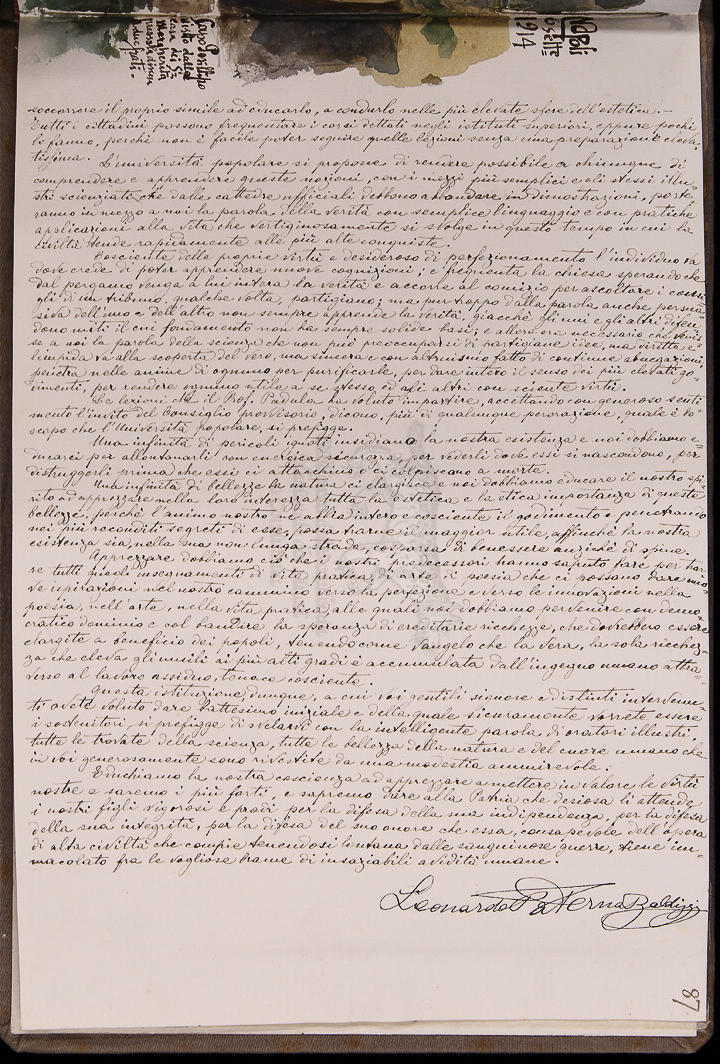 Napoli
8 sette
914
Capo Posillipo
visto dalla
casa di S.
Margherita
educhati.
soccorrere il proprio simile ad educarlo, a condurlo nelle più elevate sfere dell'estetica. —
Tutti i cittadini possono frequentare i corsi dettati negli istituti superiori, eppure pochi
lo fanno, perchè non è facile poter seguire quelle lezioni senza una preparazione eleva-
tissima.
L'università popolare si propone di rendere possibile a chiunque di
comprendere e apprendere queste nozioni, con i mezzi più semplici e gli stessi illu-
stri scienziati, che dalle cattedre ufficiali debbono abbondare in dimostrazioni, porte-
ranno in mezzo a noi la parola della verità con semplice linguaggio e con pratiche
applicazioni alla vita che vertiginosamente si svolge in questo tempo in cui la
civiltà tende rapidamente alle più alte conquiste.
Cosciente delle proprie virtù e desideroso di perfezionamento l'individuo va
dove crede di poter apprendere nuove cognizioni; e frequenta la chiesa sperando che
dal pergamo venga a lui intera la verità e accorre al comizio per ascoltare i consi-
gli di un tribuno, qualche volta, partigiano; ma purtroppo dalla parola anche persua-
siva dell'uno e dell'altro non sempre apprende la verità, giacchè gli uni e gli altri difen-
dono miti il cui fondamento non ha sempre solide basi; e allora era necessario che venis-
se a noi la parola della scienza che non può preoccuparsi di partigiane idee, ma diretta e
limpida va alla scoperta del vero, ma sincera e con altruismo fatto di continue abnegazioni,
penetra nelle anime di ognuno per purificarle, per dare intero il senso dei più elevati go-
dimenti, per rendere ognuno utile a se stesso ed agli altri con sciente virtù.
Le lezioni che il Prof. Padula ha voluto impartire, accettando con generoso senti-
mento l'invito del Consiglio provvisorio, dicono, più di qualunque perorazione, quale è lo
scopo che l'Università popolare si prefigge.
Una infinità di pericoli ignoti insidiano la nostra esistenza e noi dobbiamo e-
ducarci per allontanarli con energica sicurezza, per vederli dove essi si nascondono, per
distruggerli prima che essi ci attacchino o ci colpiscano a morte.
Una infinità di bellezze la natura ci elargisce e noi dobbiamo educare il nostro spi-
rito ad apprezzare nella loro interezza tutta la estetica e la etica importanza di queste
bellezze, perchè l'animo nostro ne abbia intero e cosciente il godimento e penetrando
nei più reconditi segreti di esse, possa trarne il maggior utile, affinchè la nostra
esistenza sia, nella sua non lunga strada, cosparsa di benessere anzichè di spine.
Apprezzare dobbiamo ciò che i nostri predecessori hanno saputo fare per trar-
re tutti quegli insegnamenti di vita pratica, di arte, di poesia che ci possano dare nuo-
ve ispirazioni nel nostro cammino verso la perfezione e verso le innovazioni nella
poesia, nell'arte, nella vita pratica, alle quali noi dobbiamo pervenire con demo-
cratico dominio e col bandire la speranza di ereditarie ricchezze, che dovrebbero essere
elargite a beneficio dei popoli, tenendo come vangelo che la vera, la sola ricchez-
za che eleva gli umili ai più alti gradi è accumulata dall'ingegno umano attra-
verso al lavoro assiduo, tenace cosciente.
Questa istituzione dunque, a cui voi gentili signore e distinti intervenu-
ti avete voluto dare battesimo iniziale e della quale sicuramente vorrete essere
i sostenitori, si prefigge di svelarvi con la intelligente parola, di oratori illustri,
tutte le trovate della scienza, tutte le bellezza della natura e del cuore umano che
in voi generosamente sono rivestite da una modestia ammirevole.
Educhiamo la nostra coscienza ad apprezzare a mettere in valore le virtù
nostre e saremo i più forti, e sapremo dare alla Patria che desiosa li attende
i nostri figli vigorosi e prodi per la difesa della sua indipendenza, per la difesa
della sua integrità, per la difesa del suo onore che essa, consapevole dell'opera
di alta civiltà che compie tenendosi lontana dalle sanguinose guerre, tiene im-
macolato fra le vogliose brame di insaziabili avidità umane.
Leonardo Paterna Baldizzi
87